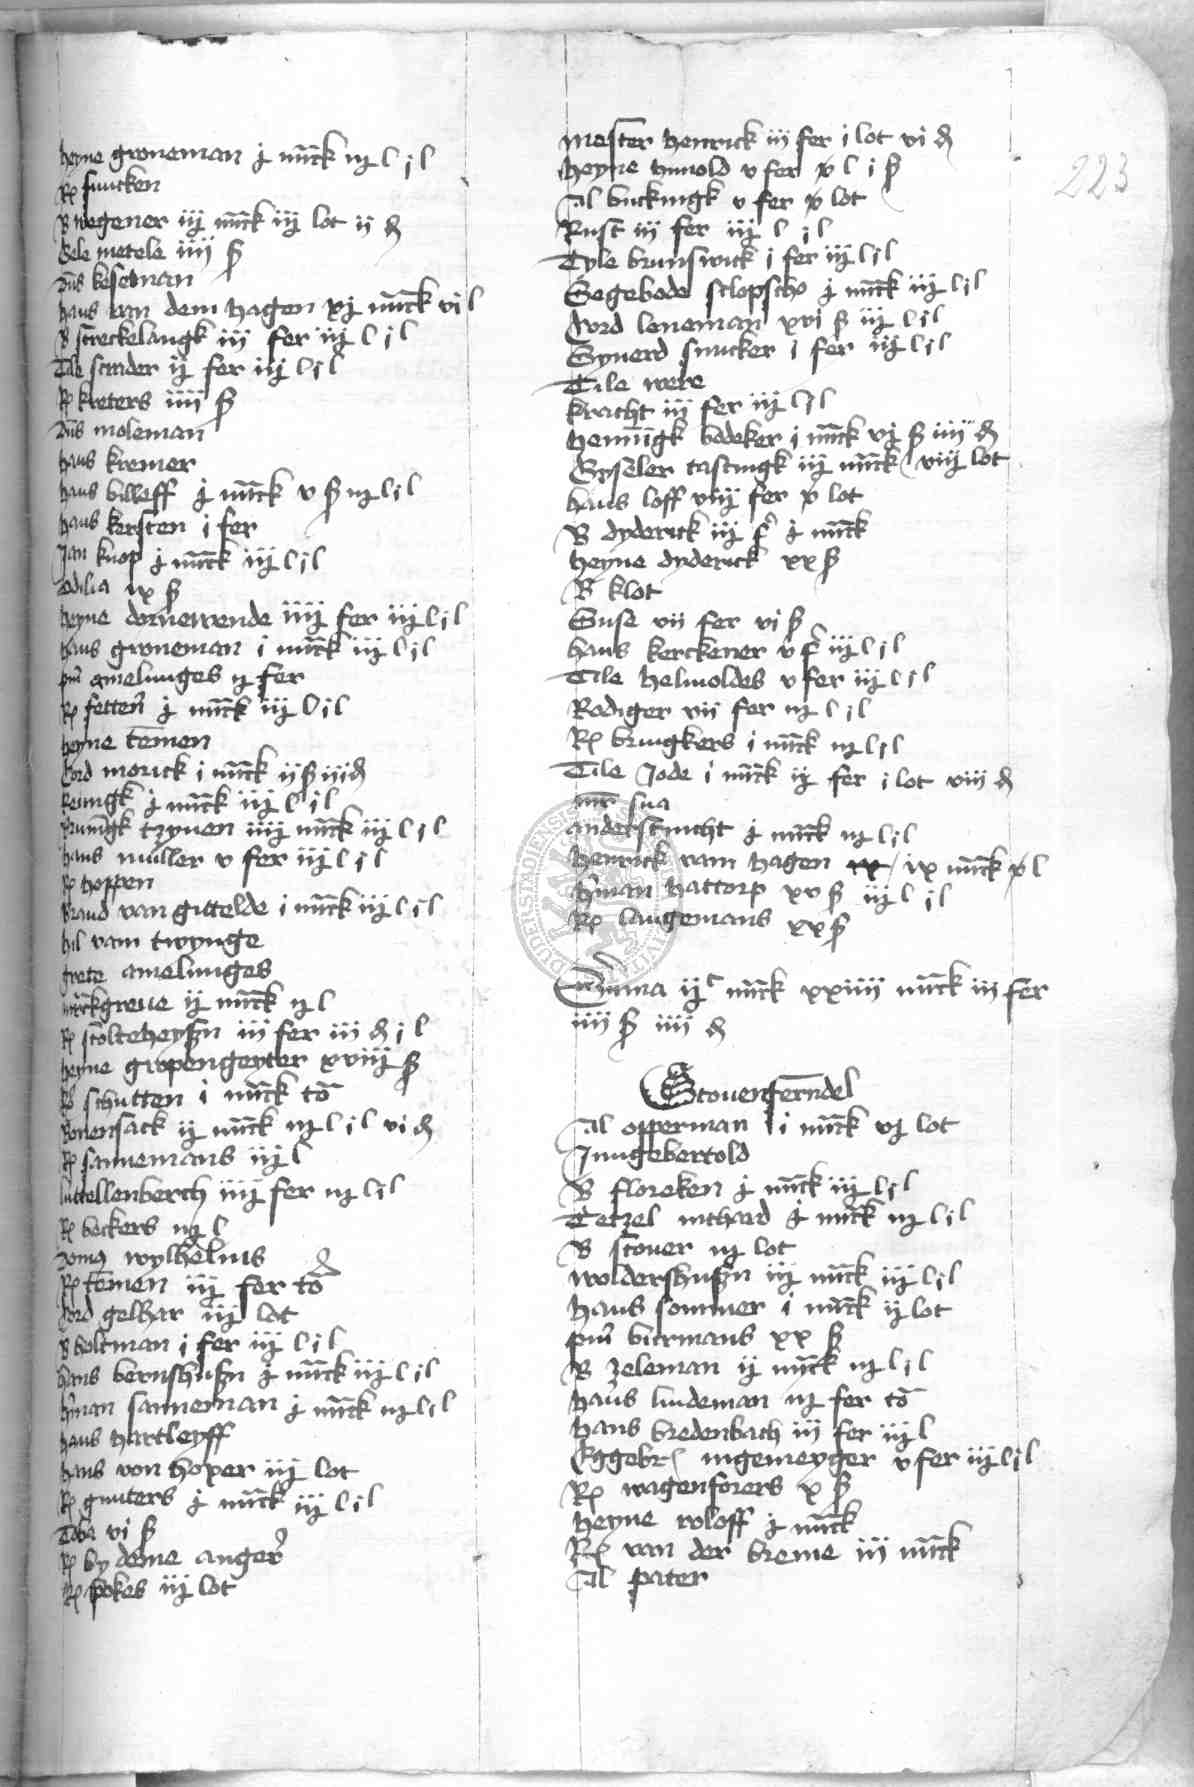 223
heyne groneman j marck iij l j l
Rel funcken
B wegener iij marck iij lot ij d
Gele metele iiij s
dns keseman
hans van dem hagen xj marck vi l
B streckelangk iij fer iij l j l
Tile scrader ij fer iij l j l
Rel kreters iiij s
dns moleman
hans kremer
hans billeff j marck v s iij l j l
hans kersten i fer
Jan knop j marck iij l j l
odilia ix s
heyne dornewende iiij fer iij l j l
hans groneman i marck iij l j l
pueri amelunges ij fer
Rel fetten j marck iij l j l
heyne temen
Cord morick i marck ij s iij d
konigk j marck iij l j l
brunigk tzynen iiij marck iij l j l
hans muller v fer iij l j l
Rel hoppen
Brand van gittelde i marck iij l j l
hil vam twynge
grete amelunges
marckgreve ij marck ij l
Rel stolteheyszn iij fer iij d j l
heyne gropengeyter xviij s
Rel schutten i marck to
Rovensack ij marck iij l j l vi d
Rel sannemans iij l
luttellenberch iiij fer iij l j l
Rel beckers iij l
wylhelmus
Rel temen iij fer to
Cord gelhar iij lot
B boltman i fer iij l j l
hans bernshuszn j marck iij l j l
herman sanneman j marck iij l j l
hans hartleyff
hans von hoxer iij lot
Rel gunters j marck iij l j l
Toba vi s
Rel by deme anger
Rel pokes iij lot
mester henrick iij fer i lot vi d
heyne hunold v fer x l i s
Al buckingk v fer x lot
Rust iij fer iij l j l
Tyle brunswick i fer iij l j l
Segebode sclopscho j marck iij l j l
Cord leneman xvi s iij l j l
Syverd snucker i fer iij l j l
Tile were
kracht iij fer iij l j l
hennigk bodeker i marck vj s iiij d
Gyseler tastungk iij marck viij lot
hans loff viij fer x lot
B dyderick iij f j marck
heyne dyderick xx s
B klot
Suse vii fer vi s
hans kerckener v f iij l j l
Tile helmoldes v fer iij l j l
Rodiger vii fer iij l j l
Rel brugkers i marck iij l j l
Tile Jode i marck ij fer i lot viii d
mr sua
anderstnicht j marck iij l j l
henrick vam hagen ix marck x l
herman hattorp xv s iij l j l
Rel langemans xx s
Summa ij c marck xxiiii marck iij fer
iiii s iiii d
Stovenferndel
Al opperman i marck vj lot
Jungebertold
B floreken j marck iij l j l
Tetzel nithard j marck iij l j l
B stover iij lot
woldershuszn iij marck iij l j l
hans sommer i marck ij lot
pueri burmans xx s
B zeleman ij marck iij l j l
hans lindeman iij fer to
hans bredenbach iij fer iij l
Eggebr ingemeyger v fer iij l j l
Rel wagenforers x s
heyne roloff j marck
Rel van der breme iij marck
Al pater
DUDERSTADIENSIS CIVITATIS